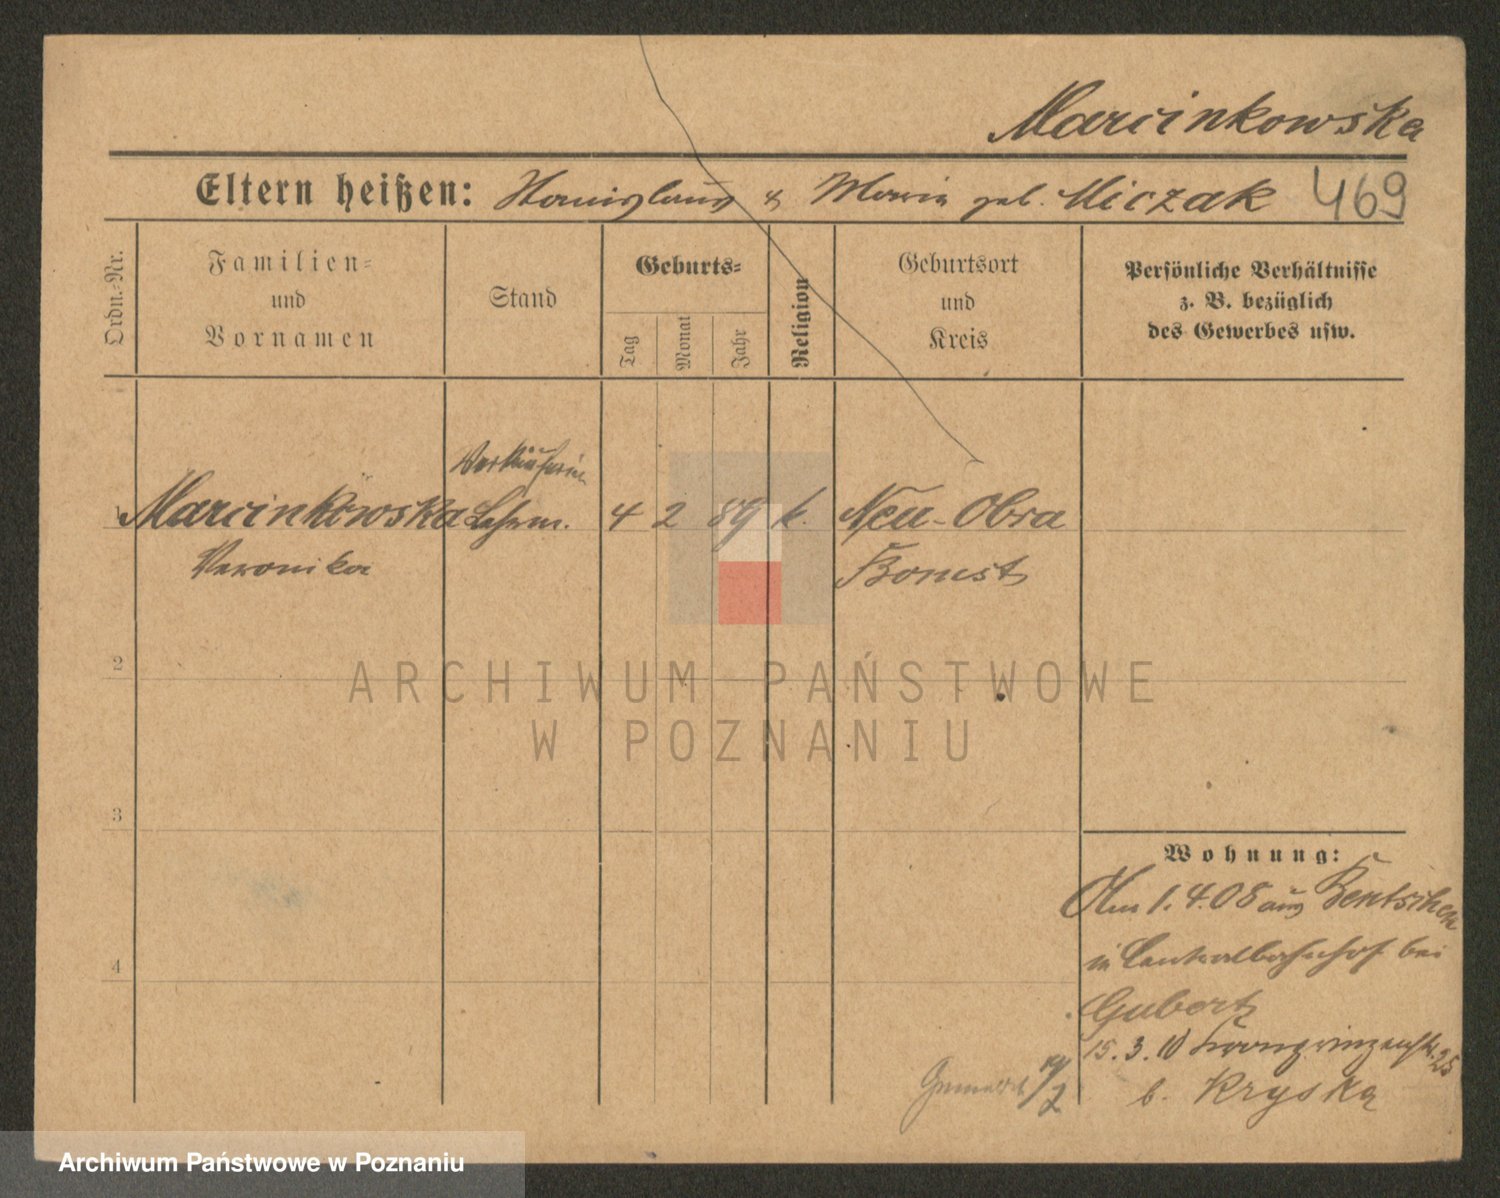 Marcinkowska
Eltern heißen: Stanislaus & Maria geb. Miczak 469
Ordn.-Nr.
Familien-
und
Vornamen
Stand
Geburts-
Tag
Monat
Jahr
Religion
Geburtsort
und
Kreis
Persönliche Verhältnisse
z. B. bezüglich
des Gewerbes usw.
Verkäuferin
1 Marcinkowska 4 2 89 k. Neu-Obra
Veronika Bomst
2
ARCHIWUM PAŃSTWOWE
W POZNANIU
3
Wohnung:
1.4.08 aus Bentschen
4
in Centralbahnhof bei
Gubert
15.3.10 Kronprinzenstr. 25
b. Kryska
Archiwum Państwowe w Poznaniu